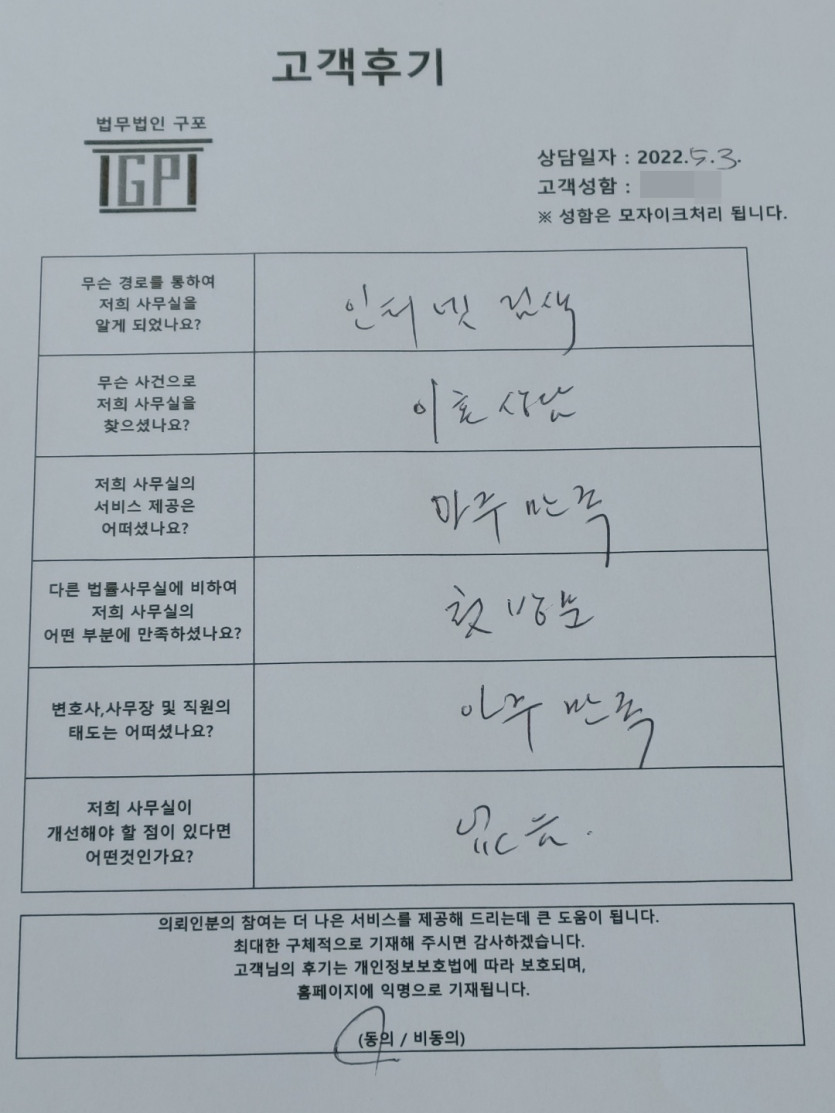 고객후기
법무법인 구포
IGPI
상담일자 : 2022.5.3.
고객성함 :
※ 성함은 모자이크처리 됩니다.
무슨 경로를 통하여
저희 사무실을
알게 되었나요?
인터넷 검색
무슨 사건으로
저희 사무실을
찾으셨나요?
이혼상담
저희 사무실의
서비스 제공은
어떠셨나요?
아주 만족
다른 법률사무실에 비하여
저희 사무실의
어떤 부분에 만족하셨나요?
첫 방문
변호사,사무장 및 직원의
태도는 어떠셨나요?
아주 만족
저희 사무실이
개선해야 할 점이 있다면
어떤것인가요?
없음.
의뢰인분의 참여는 더 나은 서비스를 제공해 드리는데 큰 도움이 됩니다.
최대한 구체적으로 기재해 주시면 감사하겠습니다.
고객님의 후기는 개인정보보호법에 따라 보호되며,
홈페이지에 익명으로 기재됩니다.
(동의 / 비동의)